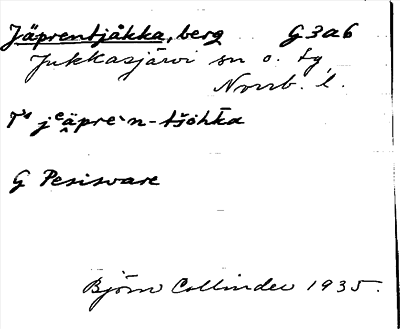 Jäprentjåkka, berg G3a6
Jukkasjärvi sn o. tg,
Norrb. l.
Ts jeäpre`n-tšòhka
G Pesisvare
Björn Collinder 1935.